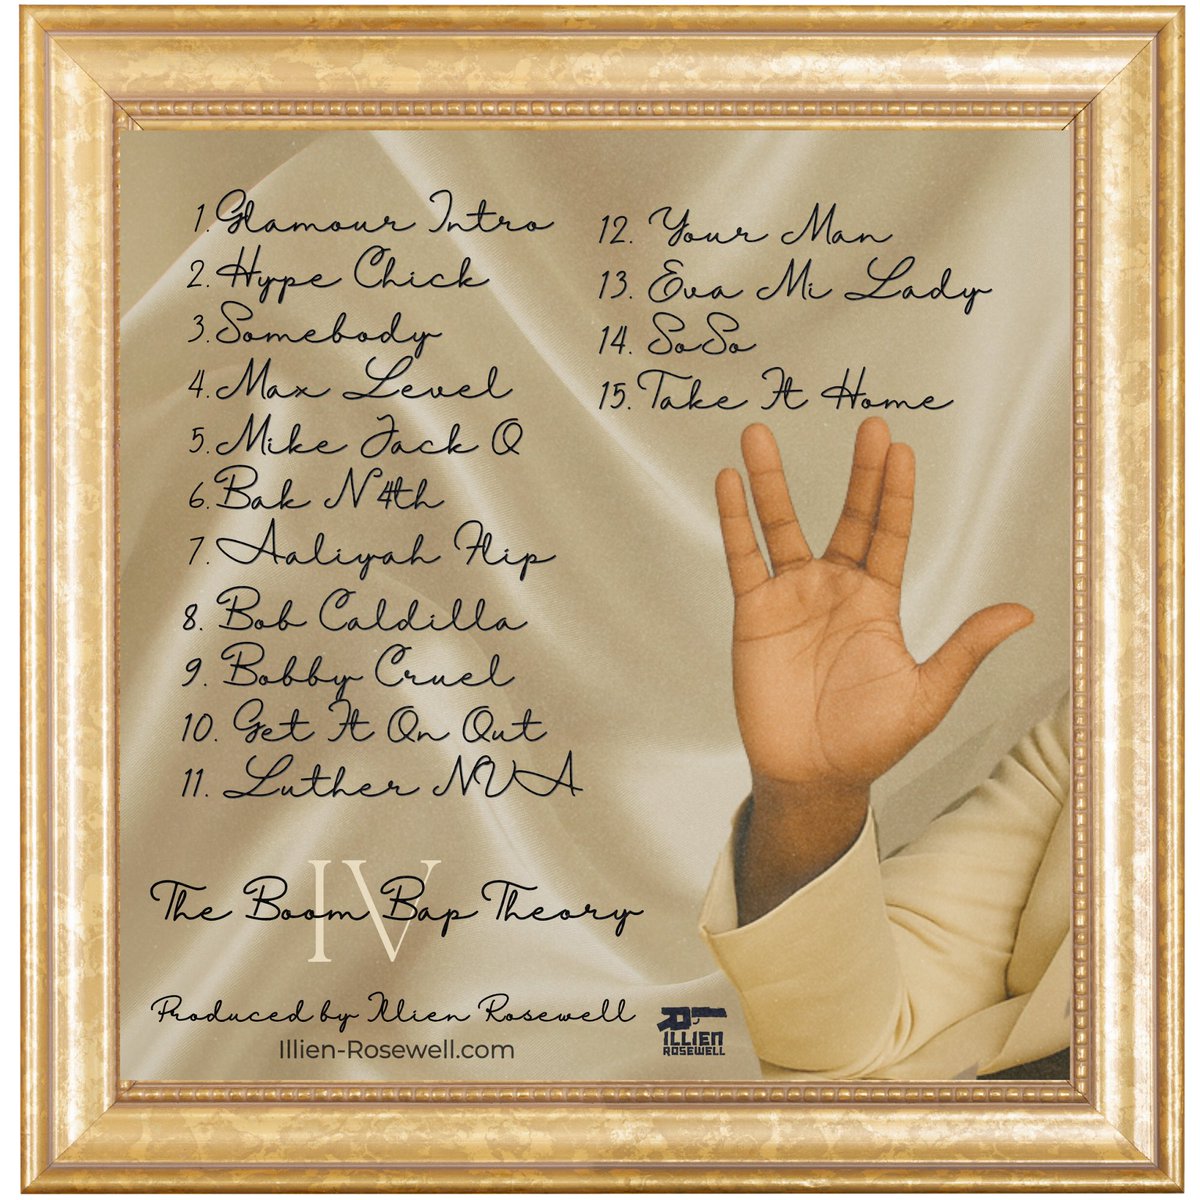 1. Glamour Intro
2. Hype Chick
3. Somebody
4. Max Level
5. Mike Jack Q
6. Bak N 4th
7. Aaliyah Flip
8. Bob Caldilla
9. Bobby Cruel
10. Get It On Out
11. Luther NVA
12. Your Man
13. Eva Mi Lady
14. SoSo
15. Take It Home
IV
The Boom Bap Theory
Produced by Illien Rosewell
Illien-Rosewell.com
ILLIEN
ROSEWELL